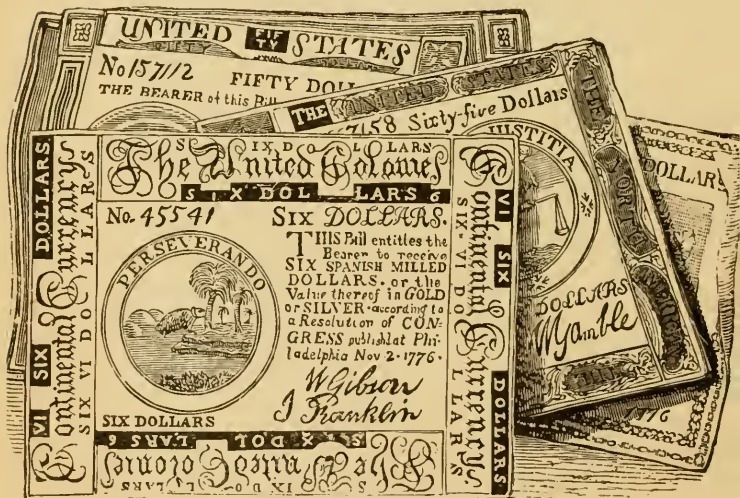 UNITED FIF TY STATES
No 157112 FIFTY DOL
THE BEARER of this Bill
THE UNITED STATES
7158 Sixty-five Dollars
THE
NORTH
AMERICA
IUSTITIA
DOLLARS
WGamble
DOLLARS
1776
SIX DOLLARS
The United Colonies
SIX DOLLARS 6
No. 45541 SIX DOLLARS.
PERSEVERANDO
THIS Bill entitles the
Bearer to receive
SIX SPANISH MILLED
DOLLARS. or the
Value thereof in GOLD
or SILVER according to
a Resolution of CON=
GRESS publishd at Phi-
ladelphia Nov 2. 1776.
W Gibson
J Franklin
SIX DOLLARS
VI SIX DOLLARS
Continental Currency
SIX VI DOLLARS
VI SIX DOLLARS
Continental Currency
SIX VI DOLLARS
SIX DOLLARS
The United Colonies
SIX DOLLARS